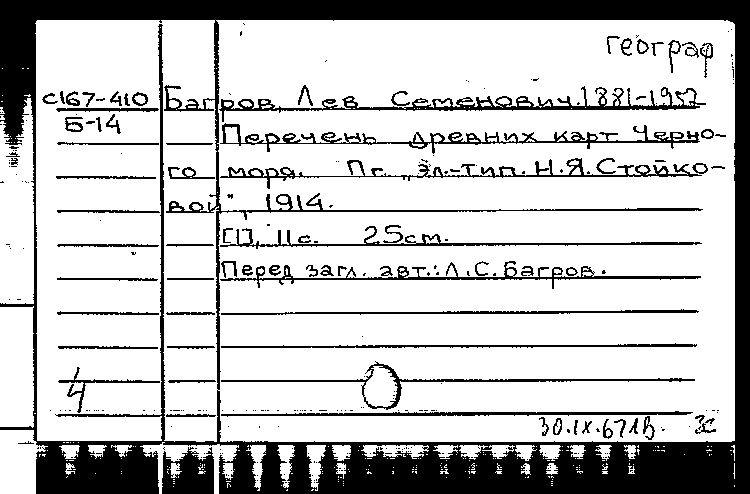 географ
с167-410 Багров, Лев Семенович. 1881-1952
Б-14 Перечень древних карт Черно-
го моря. Пг. „Эл.-тип. Н.Я. Стойко-
вой", 1914.
[1], 11 с. 25 см.
Перед загл. авт.: Л.С. Багров.
4
30.IX.67